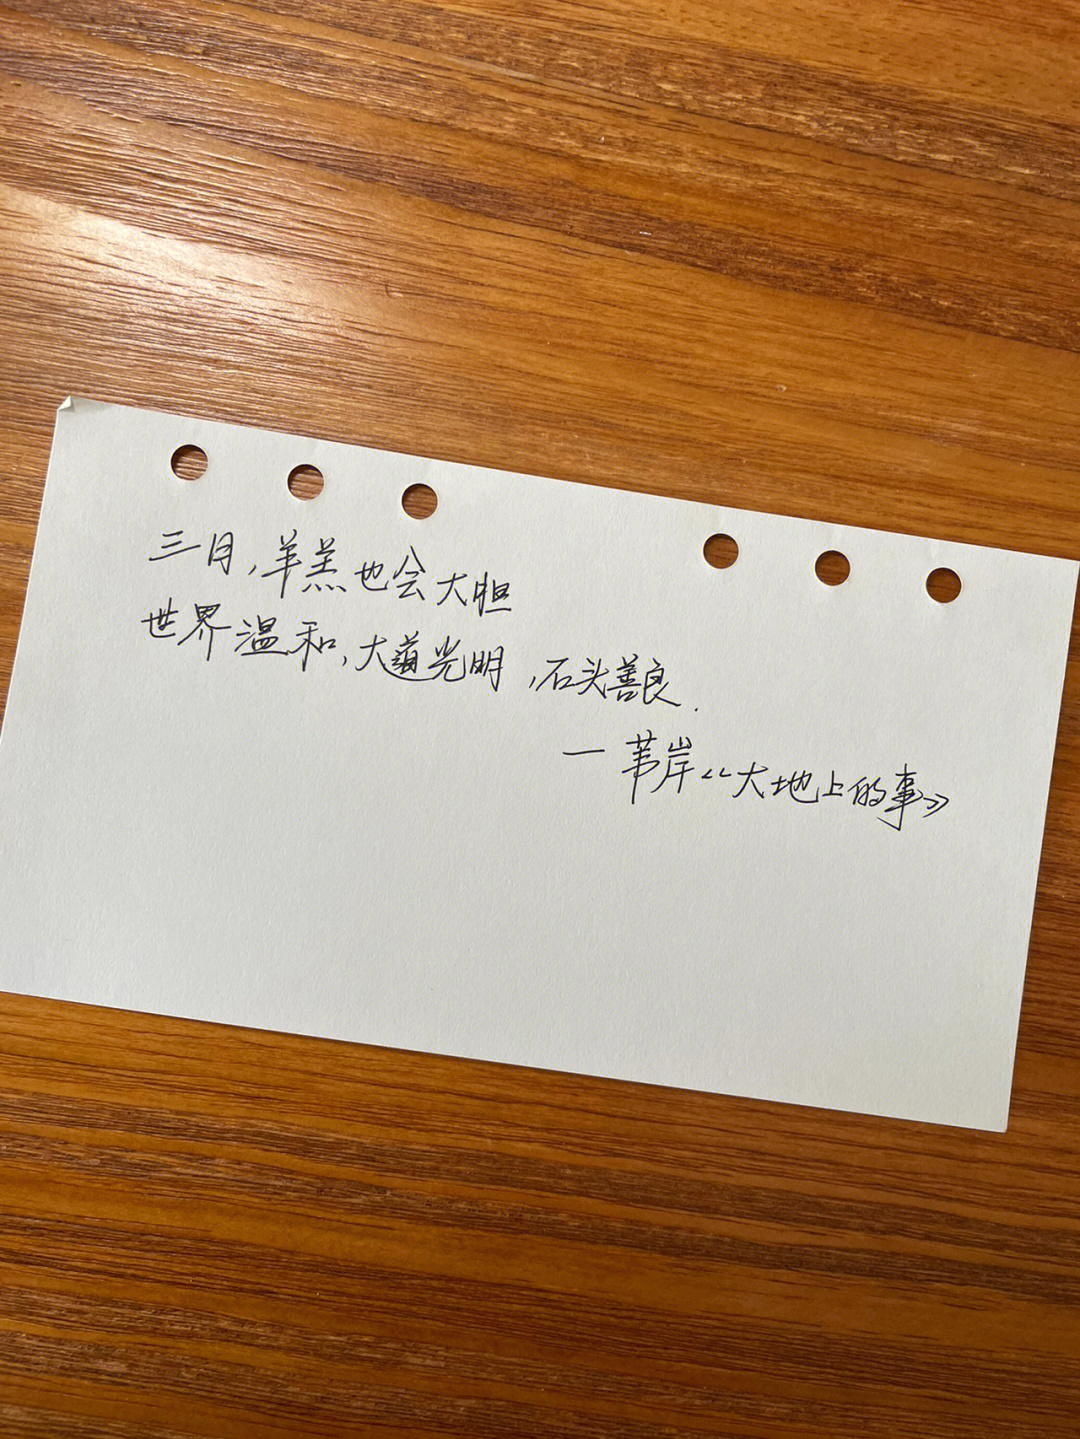 三月,羊羔也会大胆
世界温和,大道光明,石头善良.
—苇岸《大地上的事》